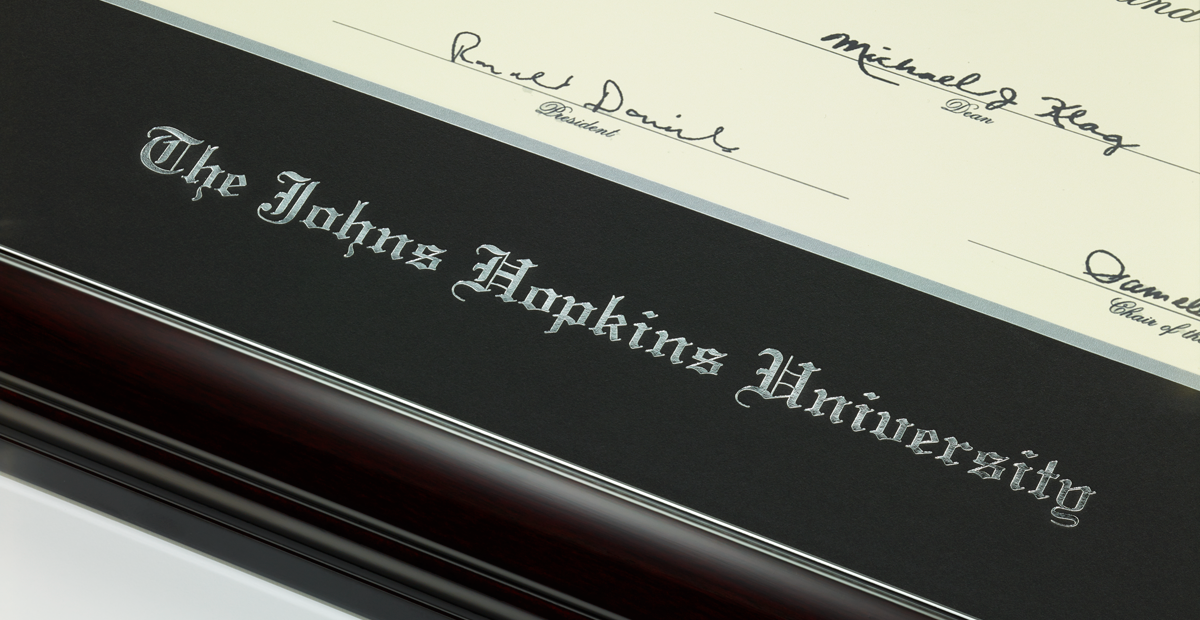 and
Michael J Klag
Dean
Ronald Daniels
President
Chair of the
The Johns Hopkins University